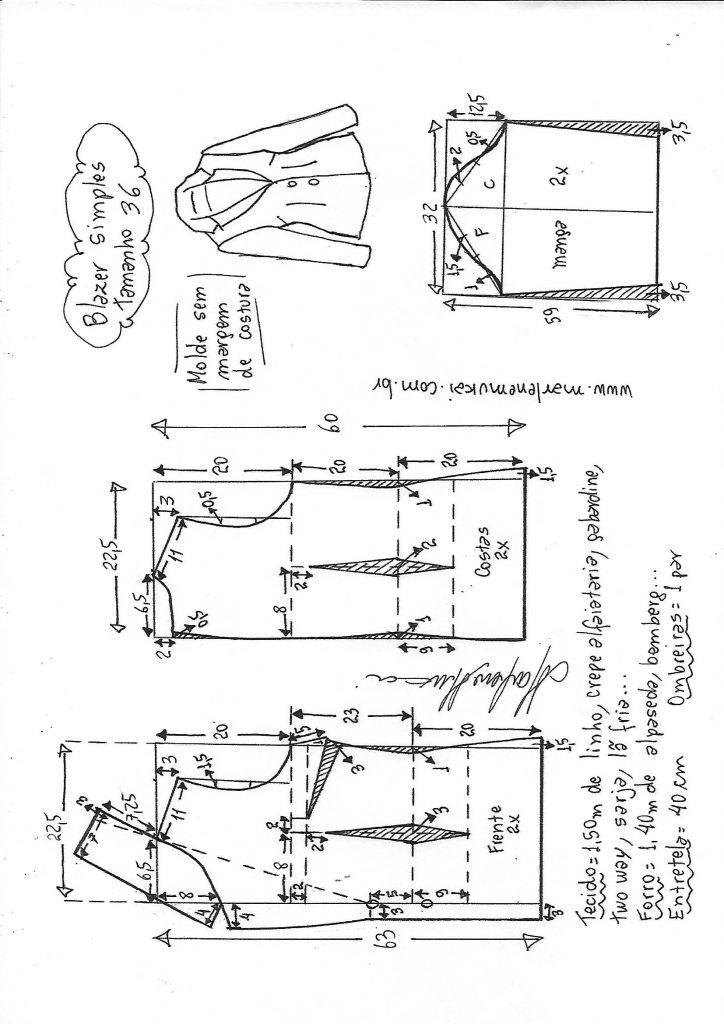 Blazer simples
Tamanho 36
Molde sem
margem
de costura
12,5
32
0,5
2
C
2x
F
manga
1,5
1
3,5
3,5
59
www.marlenemukai.com.br
60
20
20
20
22,5
3
0,5
11
6,5
2
0,5
8
2
2
1
1
9
1,5
Costas
2x
22,5
20
23
20
3
1,5
11
7,25
3
7
6,5
8
4
4
8
2
2
2
3
3
1
5
9
3
3
1,5
Frente
2x
63
Tecido = 1,50m de linho, crepe alfaiataria, gabardine,
two way, sarja, lã fria...
Forro = 1,40m de alpaseda, bemberg...
Entretela = 40 cm Ombreiras = 1 par